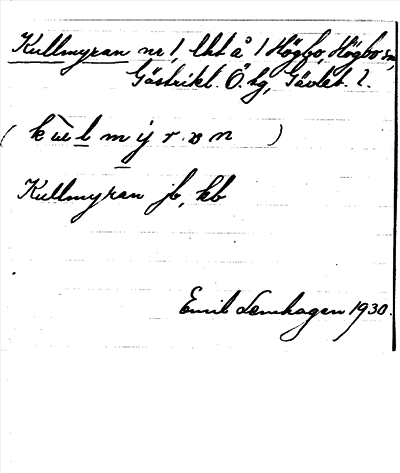 Kullmyran nr 1 lht å 1 Högbo, Högbo sn,
Gästrikl. Ö. hg, Gävleb. l.
( kùlmyrɒn )
Kullmyran jb, kb
Emil Lemhagen 1930.